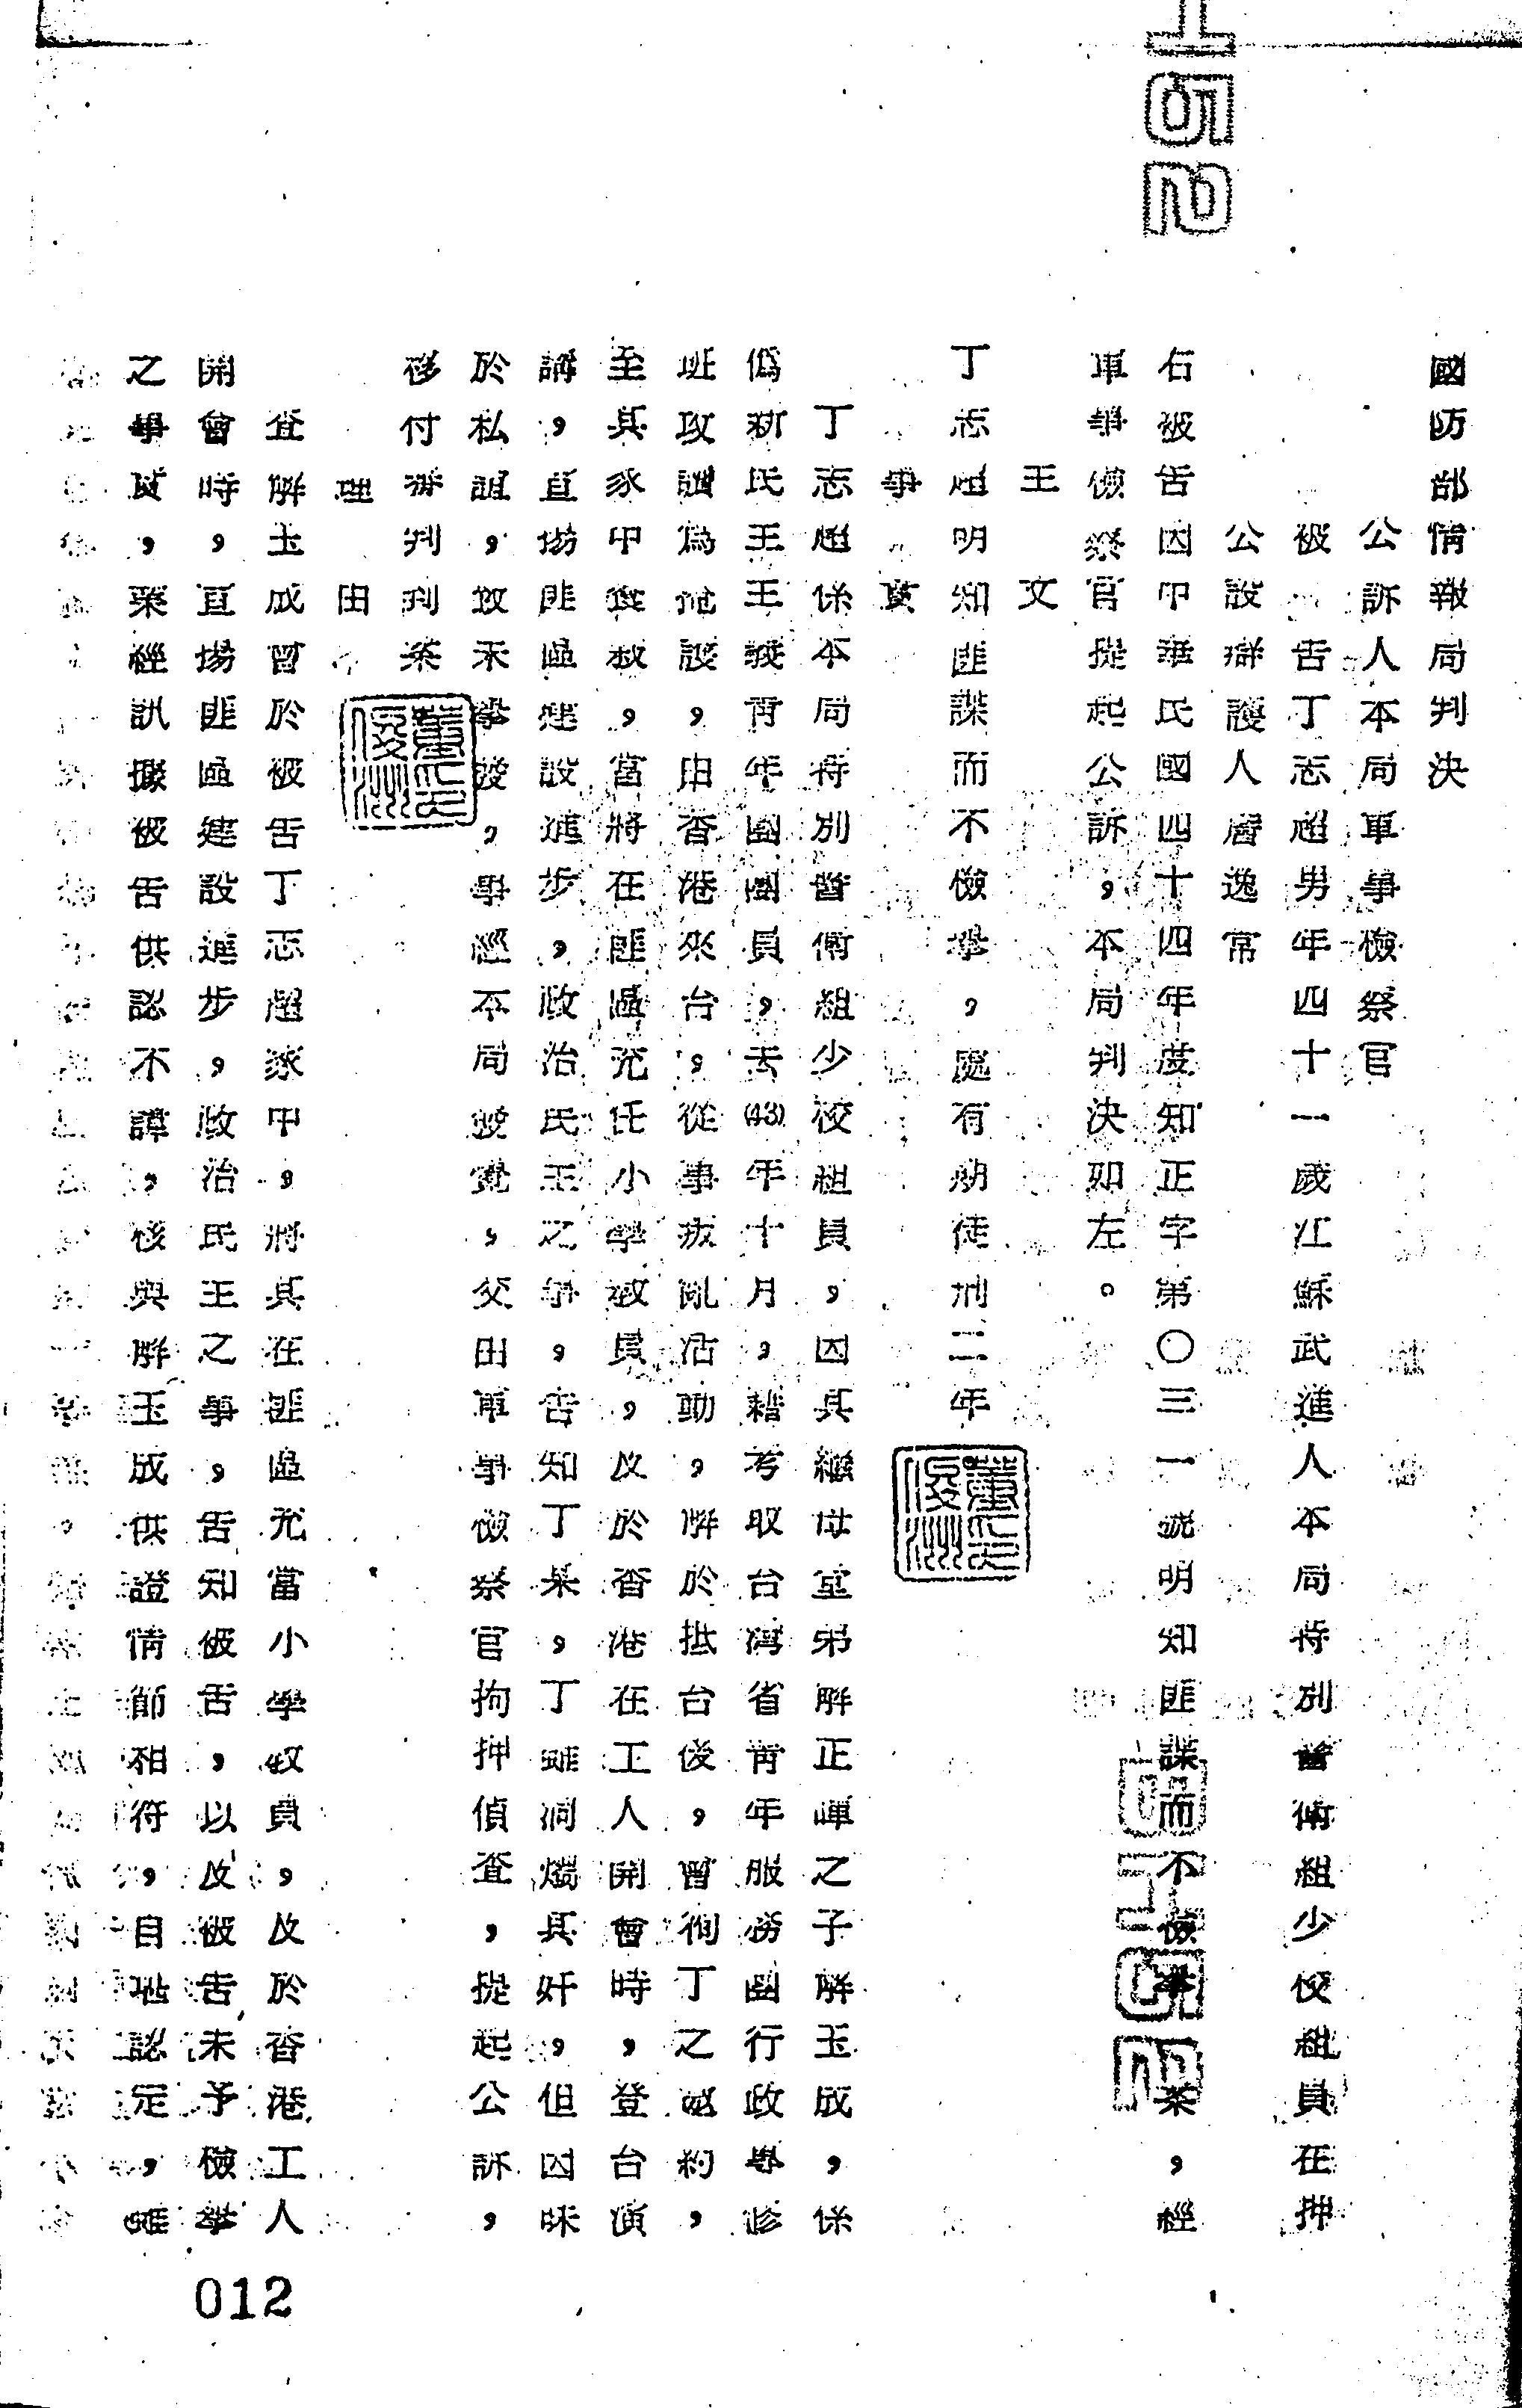 國防部情報局判決
公訴人本局軍事檢察官
被告丁志超男年四十一歲江蘇武進人本局特別督衛組少校組員在押
公設辯護人詹逸常
右被告因中華民國四十四年度知正字第〇三一號明知匪諜而不檢舉一案，經
軍事檢察官提起公訴，本局判決如左。
主文
丁志超明知匪諜而不檢舉，處有期徒刑二年
事實
丁志超係本局特別督衛組少校組員，因其繼母堂弟解正暉之子解玉成，係
偽新民主主義青年團團員，去(43)年十月，藉考取台灣省青年服務團行政專修
班攻讀為掩護，由香港來台，從事叛亂活動，解於抵台後，曾徇丁之邀約，
至其家中食叙，當將在匪區充任小學教員，及於香港在工人開會時，登台演
講，宣揚匪區建設進步，政治民主之事，告知丁某，丁雖洞燭其奸，但因昧
於私誼，故未舉發，事經本局發覺，交由軍事檢察官拘押偵查，提起公訴，
移付審判到案
理由
查解玉成曾於被告丁志超家中，將其在匪區充當小學教員，及於香港工人
開會時，宣揚匪區建設進步，政治民主之事，告知被告，以及被告未予檢舉
之事實，業經訊據被告供認不諱，核與解玉成供證情節相符，自堪認定，雖
012